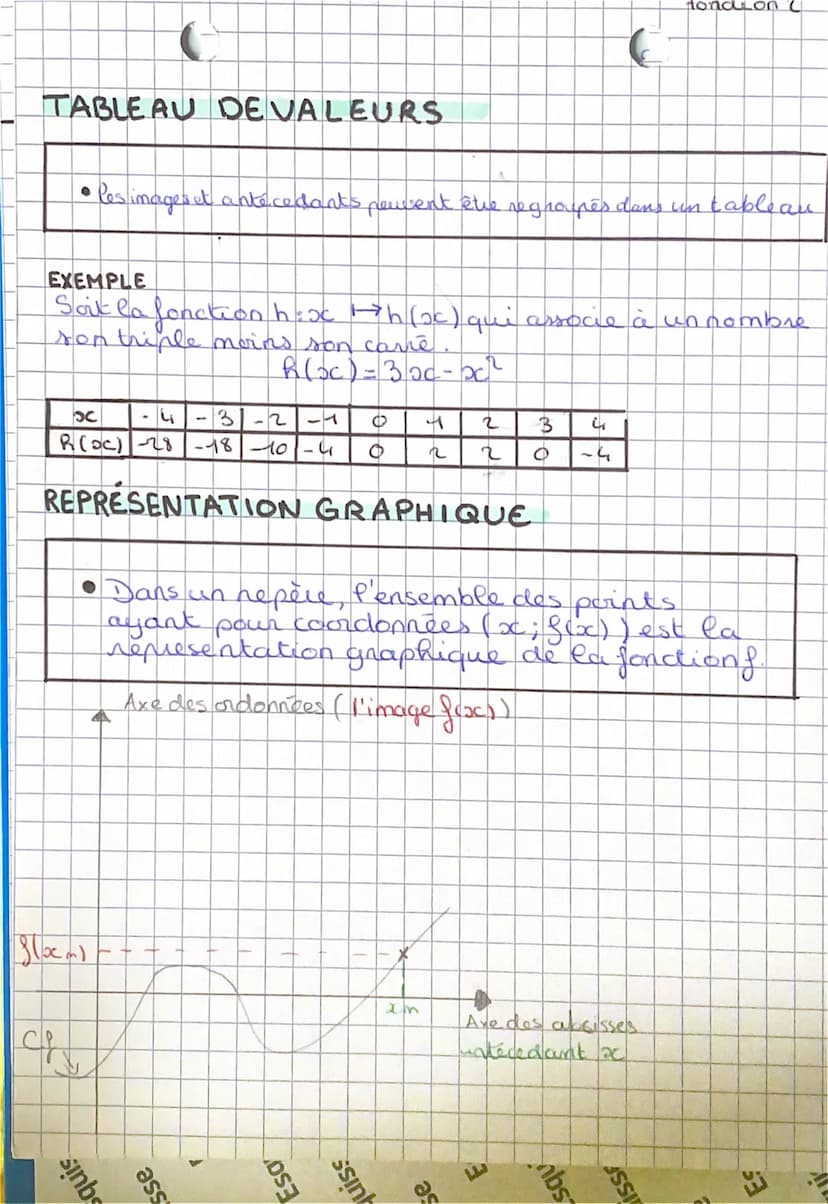 TABLEAU DE VALEURS
• les images et antécedants peuvent être regroupés dans un tableau
EXEMPLE
Soit la fonction h : x ↦ h(x) qui associe à un nombre
son triple moins son carré.
h(x) = 3x - x²
x -4 -3 -2 -1 0 1 2 3 4
h(x) -28 -18 -10 -4 0 2 2 0 -4
REPRÉSENTATION GRAPHIQUE
• Dans un repère, l'ensemble des points
ayant pour coordonnées (x ; f(x)) est la
représentation graphique de la fonction f.
Axe des ordonnées (l'image f(x))
f(xm)
xm
Axe des absisses
antécedant x
Cf